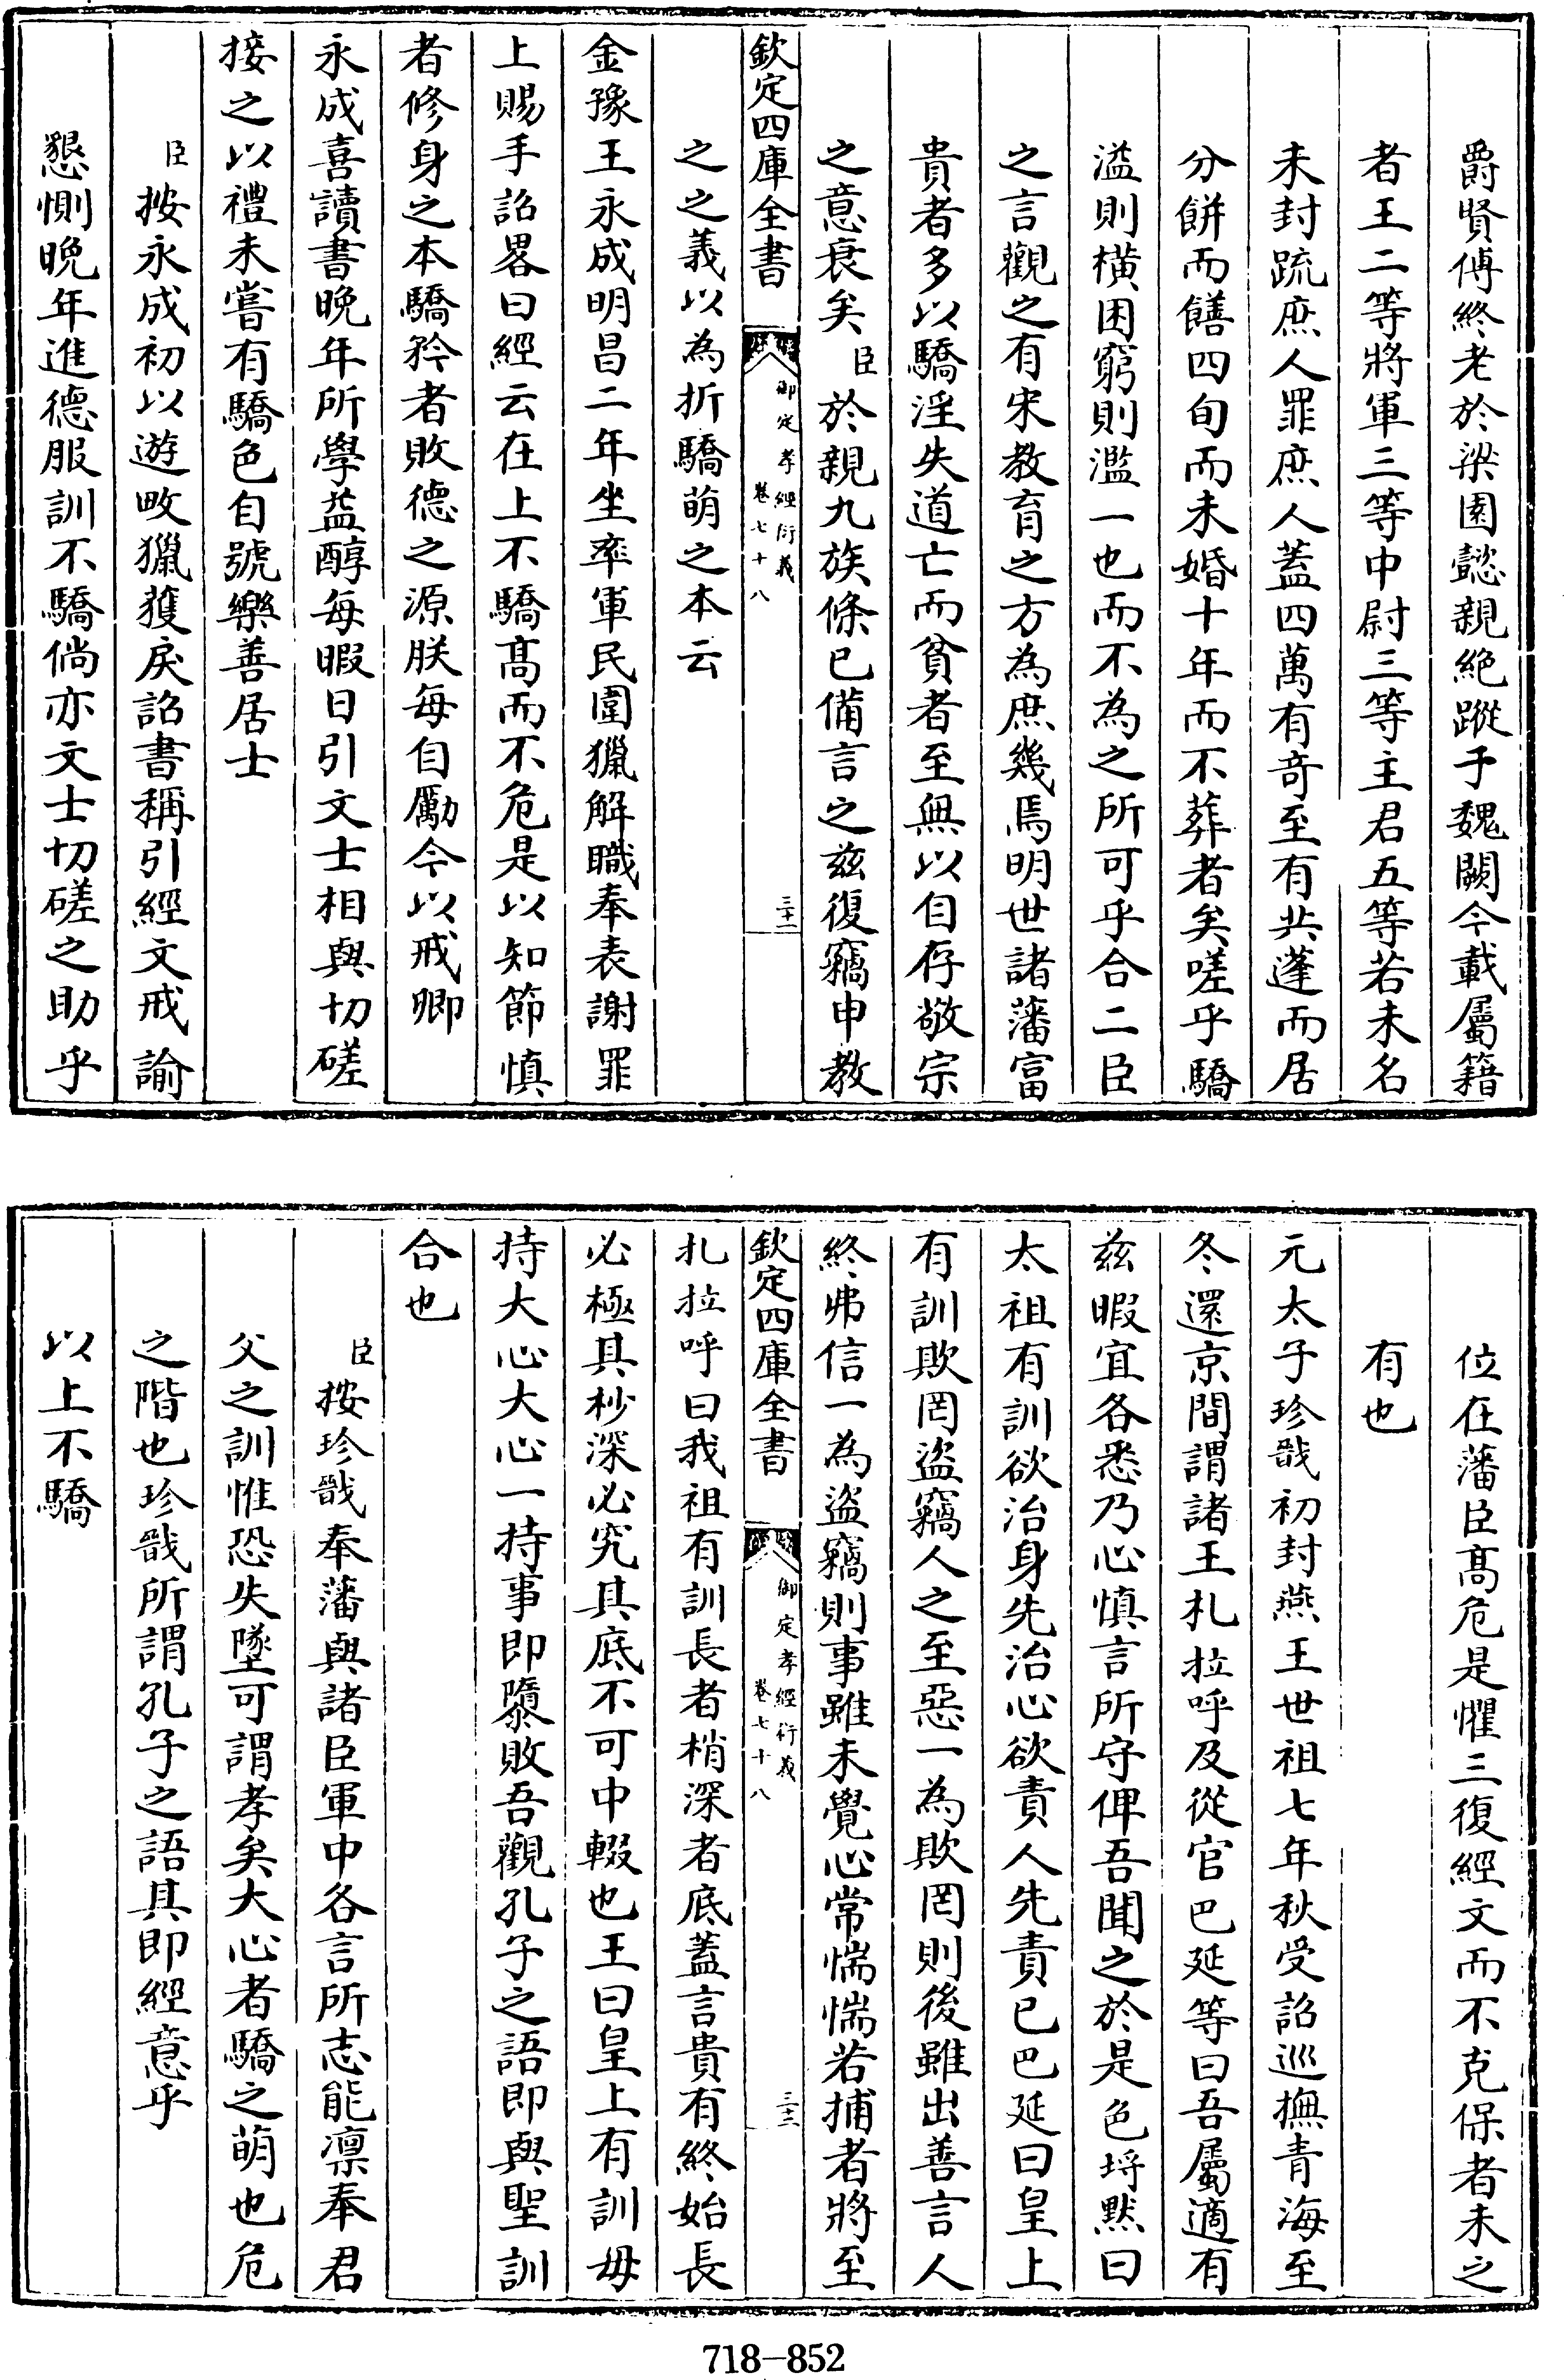 爵賢傅終老於梁園懿親絶蹤于魏闕今載屬籍
者王二等將軍三等中尉三等主君五等若未名
未封疏庶人罪庶人蓋四萬有竒至有共蓬而居
分餅而饍四旬而未婚十年而不葬者矣嗟乎驕
溢則横困窮則濫一也而不為之所可乎合二臣
之言觀之有宋教育之方為庶幾焉明世諸藩富
貴者多以驕淫失道亡而貧者至無以自存敬宗
之意衰矣臣於親九族條已備言之兹復竊申教
欽定四庫全書
御定孝經衍義
卷七十八
三十二
之之義以為折驕萌之本云
金豫王永成明昌二年坐率軍民圍獵解職奉表謝罪
上賜手詔畧曰經云在上不驕髙而不危是以知節慎
者修身之本驕矜者敗德之源朕每自勵今以戒卿
永成喜讀書晚年所學益醇每暇日引文士相與切磋
接之以禮未嘗有驕色自號樂善居士
臣按永成初以遊畋獵獲戾詔書稱引經文戒諭
懇惻晚年進德服訓不驕倘亦文士切磋之助乎
位在藩臣髙危是懼三復經文而不克保者未之
有也
元太子珍戩初封燕王世祖七年秋受詔巡撫青海至
冬還京間謂諸王札拉呼及從官巴延等曰吾屬適有
兹暇宜各悉乃心慎言所守俾吾聞之於是色埒黙曰
太祖有訓欲治身先治心欲責人先責已巴延曰皇上
有訓欺罔盜竊人之至惡一為欺罔則後雖出善言人
終弗信一為盜竊則事雖未覺心常惴惴若捕者將至
欽定四庫全書
御定孝經衍義
卷七十八
三十三
札拉呼曰我祖有訓長者梢深者底蓋言貴有終始長
必極其杪深必究其底不可中輟也王曰皇上有訓毋
持大心大心一持事即隳敗吾觀孔子之語即與聖訓
合也
臣按珍戩奉藩與諸臣軍中各言所志能凛奉君
父之訓惟恐失墜可謂孝矣大心者驕之萌也危
之階也珍戩所謂孔子之語其即經意乎
以上不驕
718-852